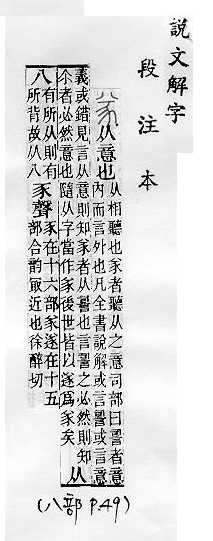 說文解字
段注本
㒸从意也从相聽也㒸者聽從之意司部曰䛐者意
內而言外也凡全書說解或言䛐或言意
義或錯見言从意則知㒸者从䛐也言䛐之必然則知
尒者必然意也隨从字當作㒸後世皆以遂爲㒸矣从
八有所从則有
所背故从八豕聲豕在十六部㒸遂在十五
部合韵冣近也徐醉切
(八部 P.49)